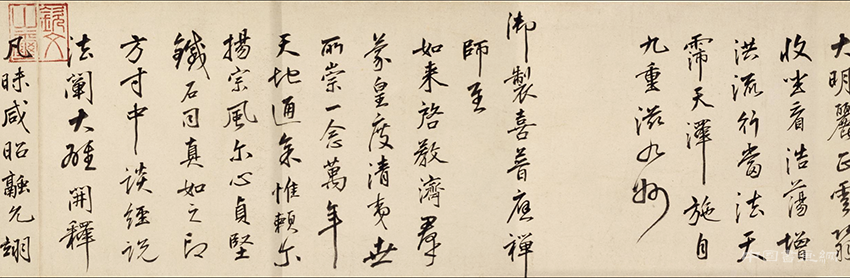 大明麗正雲翳
收坐看浩蕩增
洪流行當法天
霈天澤施自
九重滋九州
御製喜普應禪
師至
如来啓教濟羣
蒙皇度清夷世
所崇一念萬年
天地通余惟賴尔
揚宗風尔心貞堅
鐵石同真如之印
方寸中談經説
法闡大雄開釋
凡昧咸昭融允翊